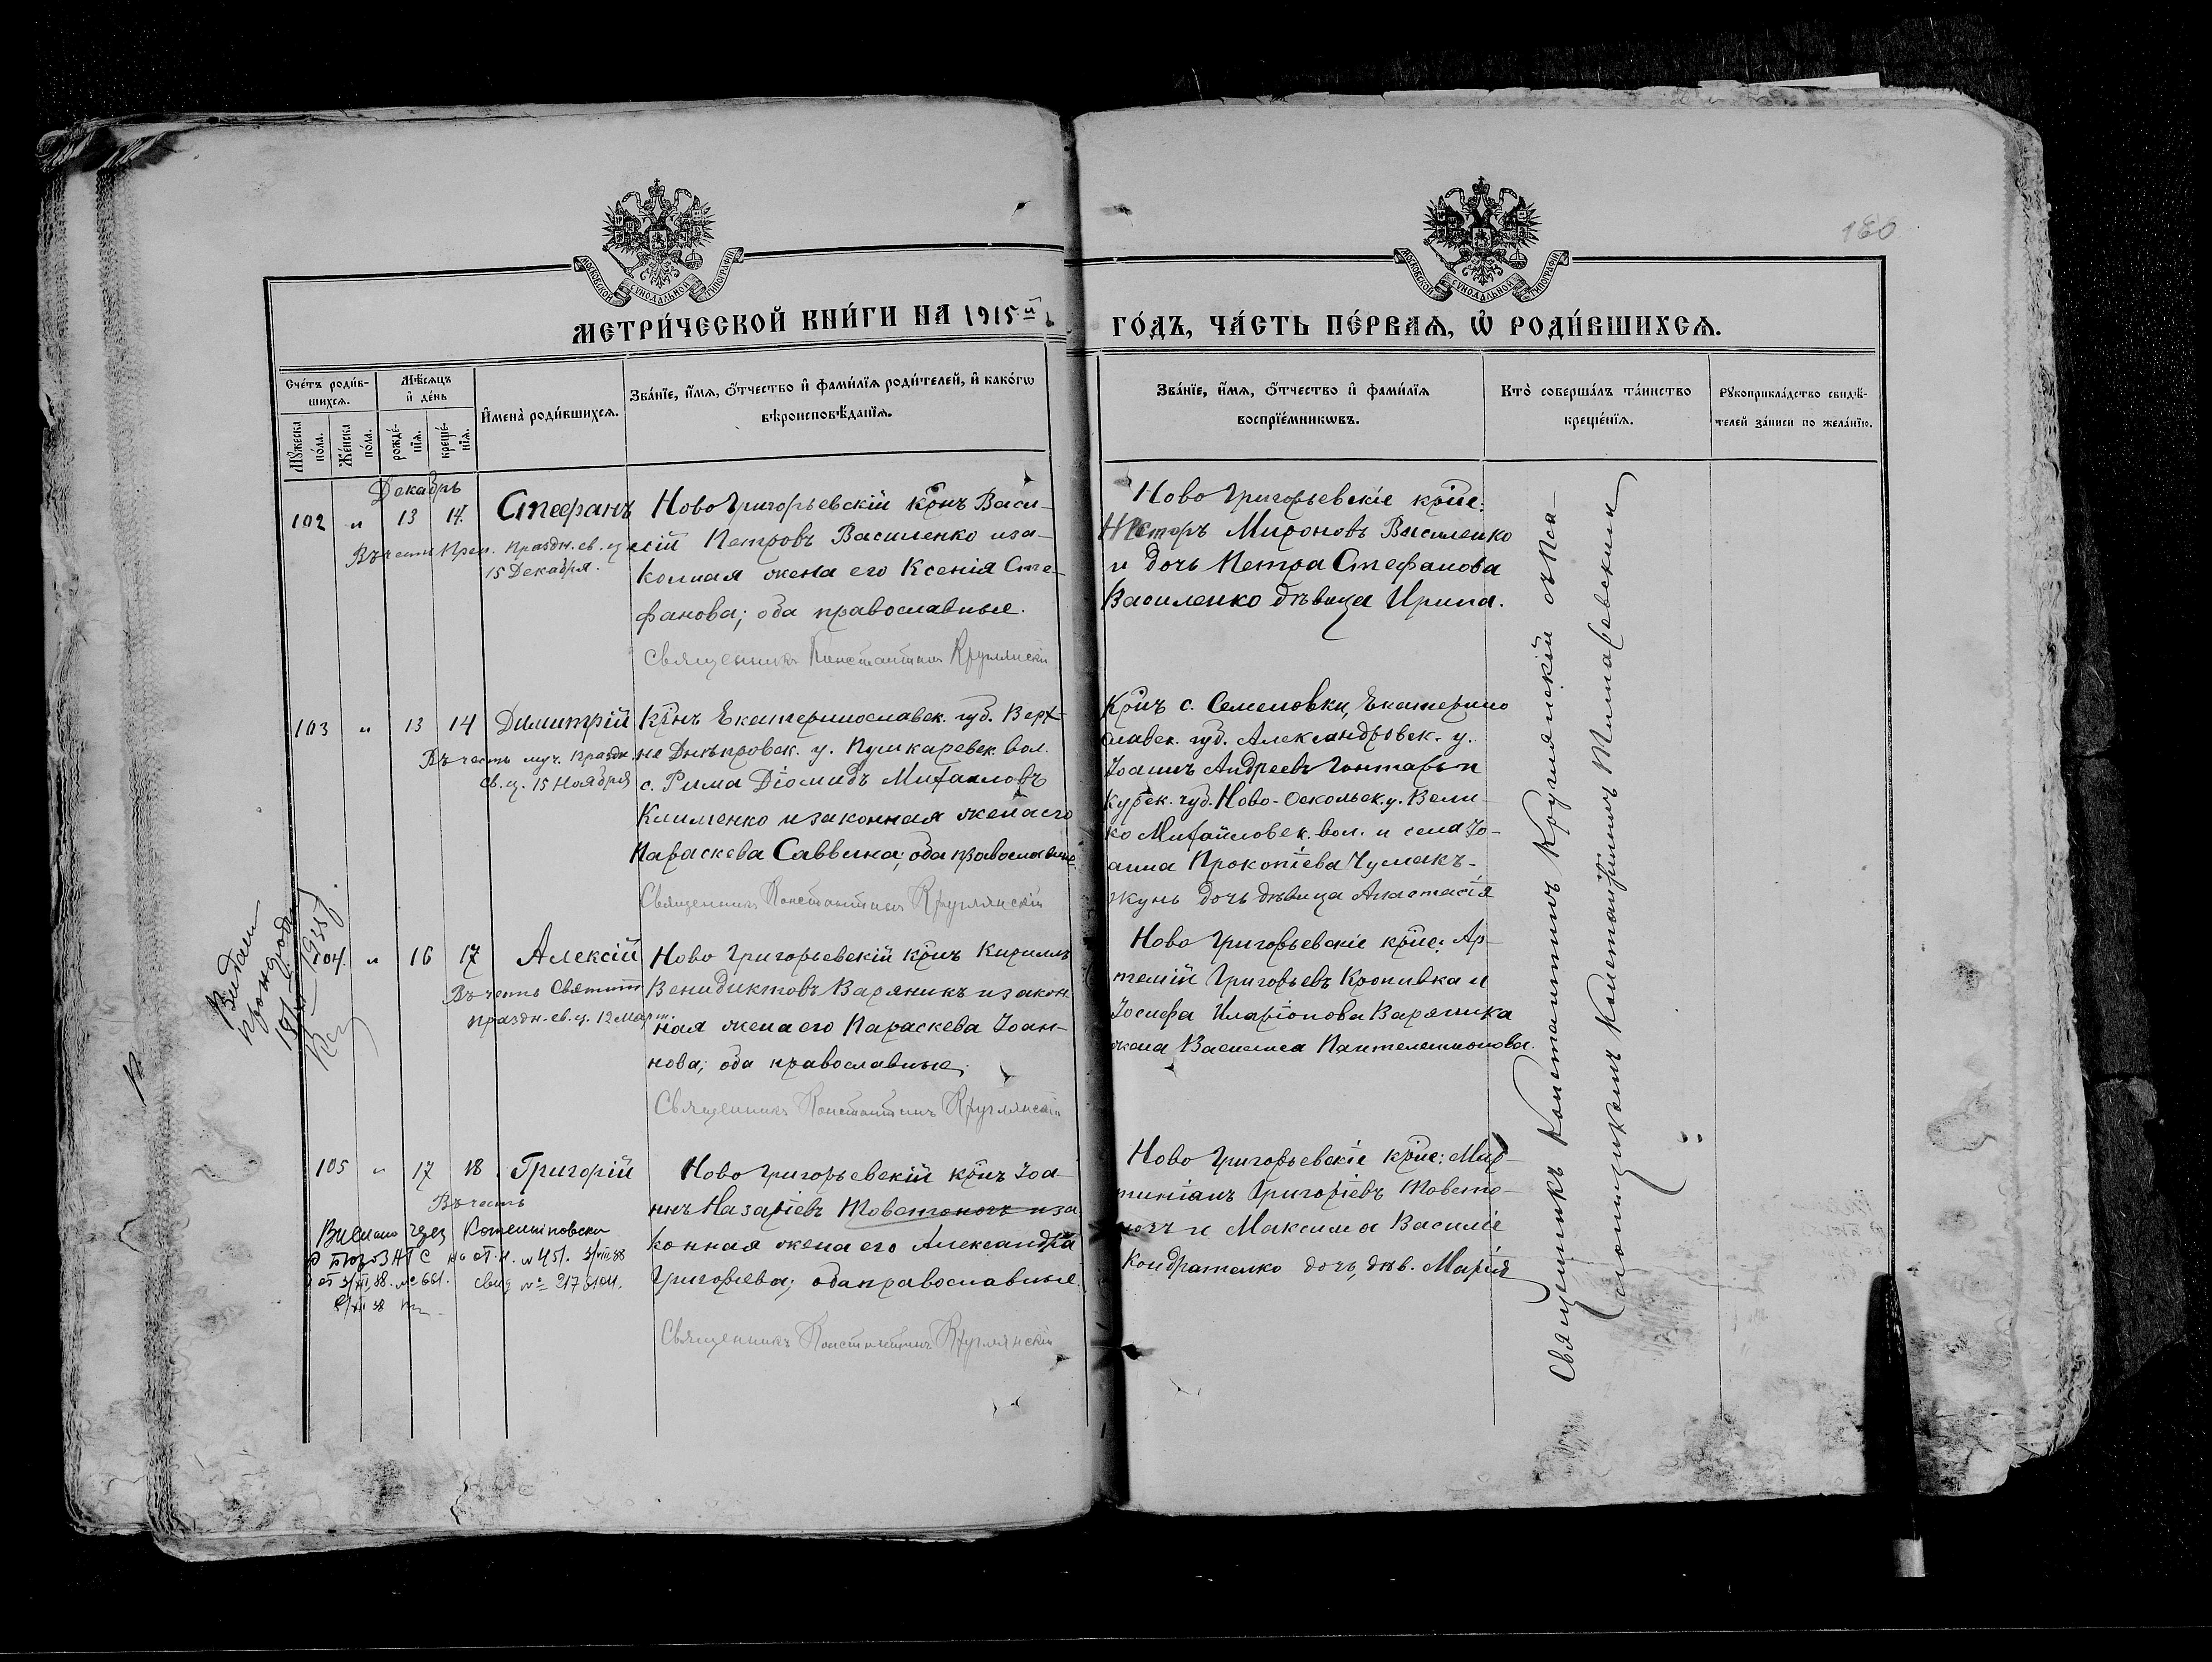 160
МОСКОВСКОЙ СѴНОДАЛЬНОЙ ТИПОГРАФІИ
МОСКОВСКОЙ СѴНОДАЛЬНОЙ ТИПОГРАФІИ
МЕТРИ́ЧЕСКОЙ КНИ́ГИ НА 1915-й
ГО́ДЪ, ЧА́СТЬ ПЕ́РВАѦ, Ѽ РОДИ́ВШИХСѦ.
Сче́тъ роди́в-
шихсѧ.
Мꙋ́жеска по́ла.
Же́нска по́ла.
Мѣ́сѧцъ и҆ де́нь
рожде́-
нїѧ.
креще́-
нїѧ.
И҆мена̀ роди́вшихсѧ.
Зва́нїе, и҆́мѧ, ѻ҆́тчество и҆ фами́лїѧ роди́телей, и҆ како́гѡ
вѣроисповѣ́данїѧ.
Зва́нїе, и҆́мѧ, ѻ҆́тчество и҆ фами́лїѧ
воспрїе́мникѡвъ.
Кто̀ соверша́лъ та́инство
креще́нїѧ.
Рꙋкоприкла́дство свидѣ́-
телей за́писи по жела́нїю.
Декабрь
102 " 13 14. Стефанъ
Въ честь Преп. Праздн. св. ц
15 Декабря.
Ново Григорьевскій крнъ Васи-
лій Петровъ Василенко и за-
конная жена его Ксенія Сте-
фанова; оба православные.
Священникъ Константинъ Круглянскій
Ново Григорьевскіе кріне:
Несторъ Мироновъ Василенко
и дочь Петра Стефанова
Василенко дѣвица Ирина.
103 " 13 14 Димитрій
Въ честь муч. Праздн.
св. ц. 15 Ноября
Крнъ Екатеринославск. губ. Верх-
не Днѣпровск. у. Пушкаревск. вол.
с. Рима Діомидъ Михаиловъ
Клименко и законная жена его
Параскева Саввина; оба православные
Священникъ Константинъ Круглянскій
Крнъ с. Семеновки, Екатерино
славск. губ. Александровск. у.
Іоаннъ Андреевъ Гонтарь и
Курск. губ. Ново-Оскольск. у. Вели-
ко Михайловск. вол. и села Іо-
анна Прокопіева Чумакъ-
жунь дочь дѣвица Анастасія
104. " 16 17 Алексій
Въ честь Святит
Праздн. св. ц. 12 Март.
Ново Григорьевскій крнъ Кириллъ
Венидиктовъ Варяникъ и закон
ная жена его Параскева Іоан-
нова; оба православные.
Священникъ Константинъ Круглянскій
Ново Григорьевскіе кріне: Ар-
темій Григорьевъ Кропивка и
Іосифа Иларіонова Варяника
жена Василиса Пантелеимонова.
105 " 17 18 Григорій
Въ честь
Ново Григорьевскій крнъ Іоа-
ннъ Назаріевъ Товстоногъ и за
конная жена его Александра
Григорьева; оба православные.
Священникъ Константинъ Круглянскій
Ново Григорьевскіе кріне: Мар-
тиніанъ Григоріевъ Товсто-
ногъ и Максима Василіе
Кондратенко дочь, дѣв. Марія
Священникъ Константинъ Круглянскій съ Пса-
ломщикомъ Константиномъ